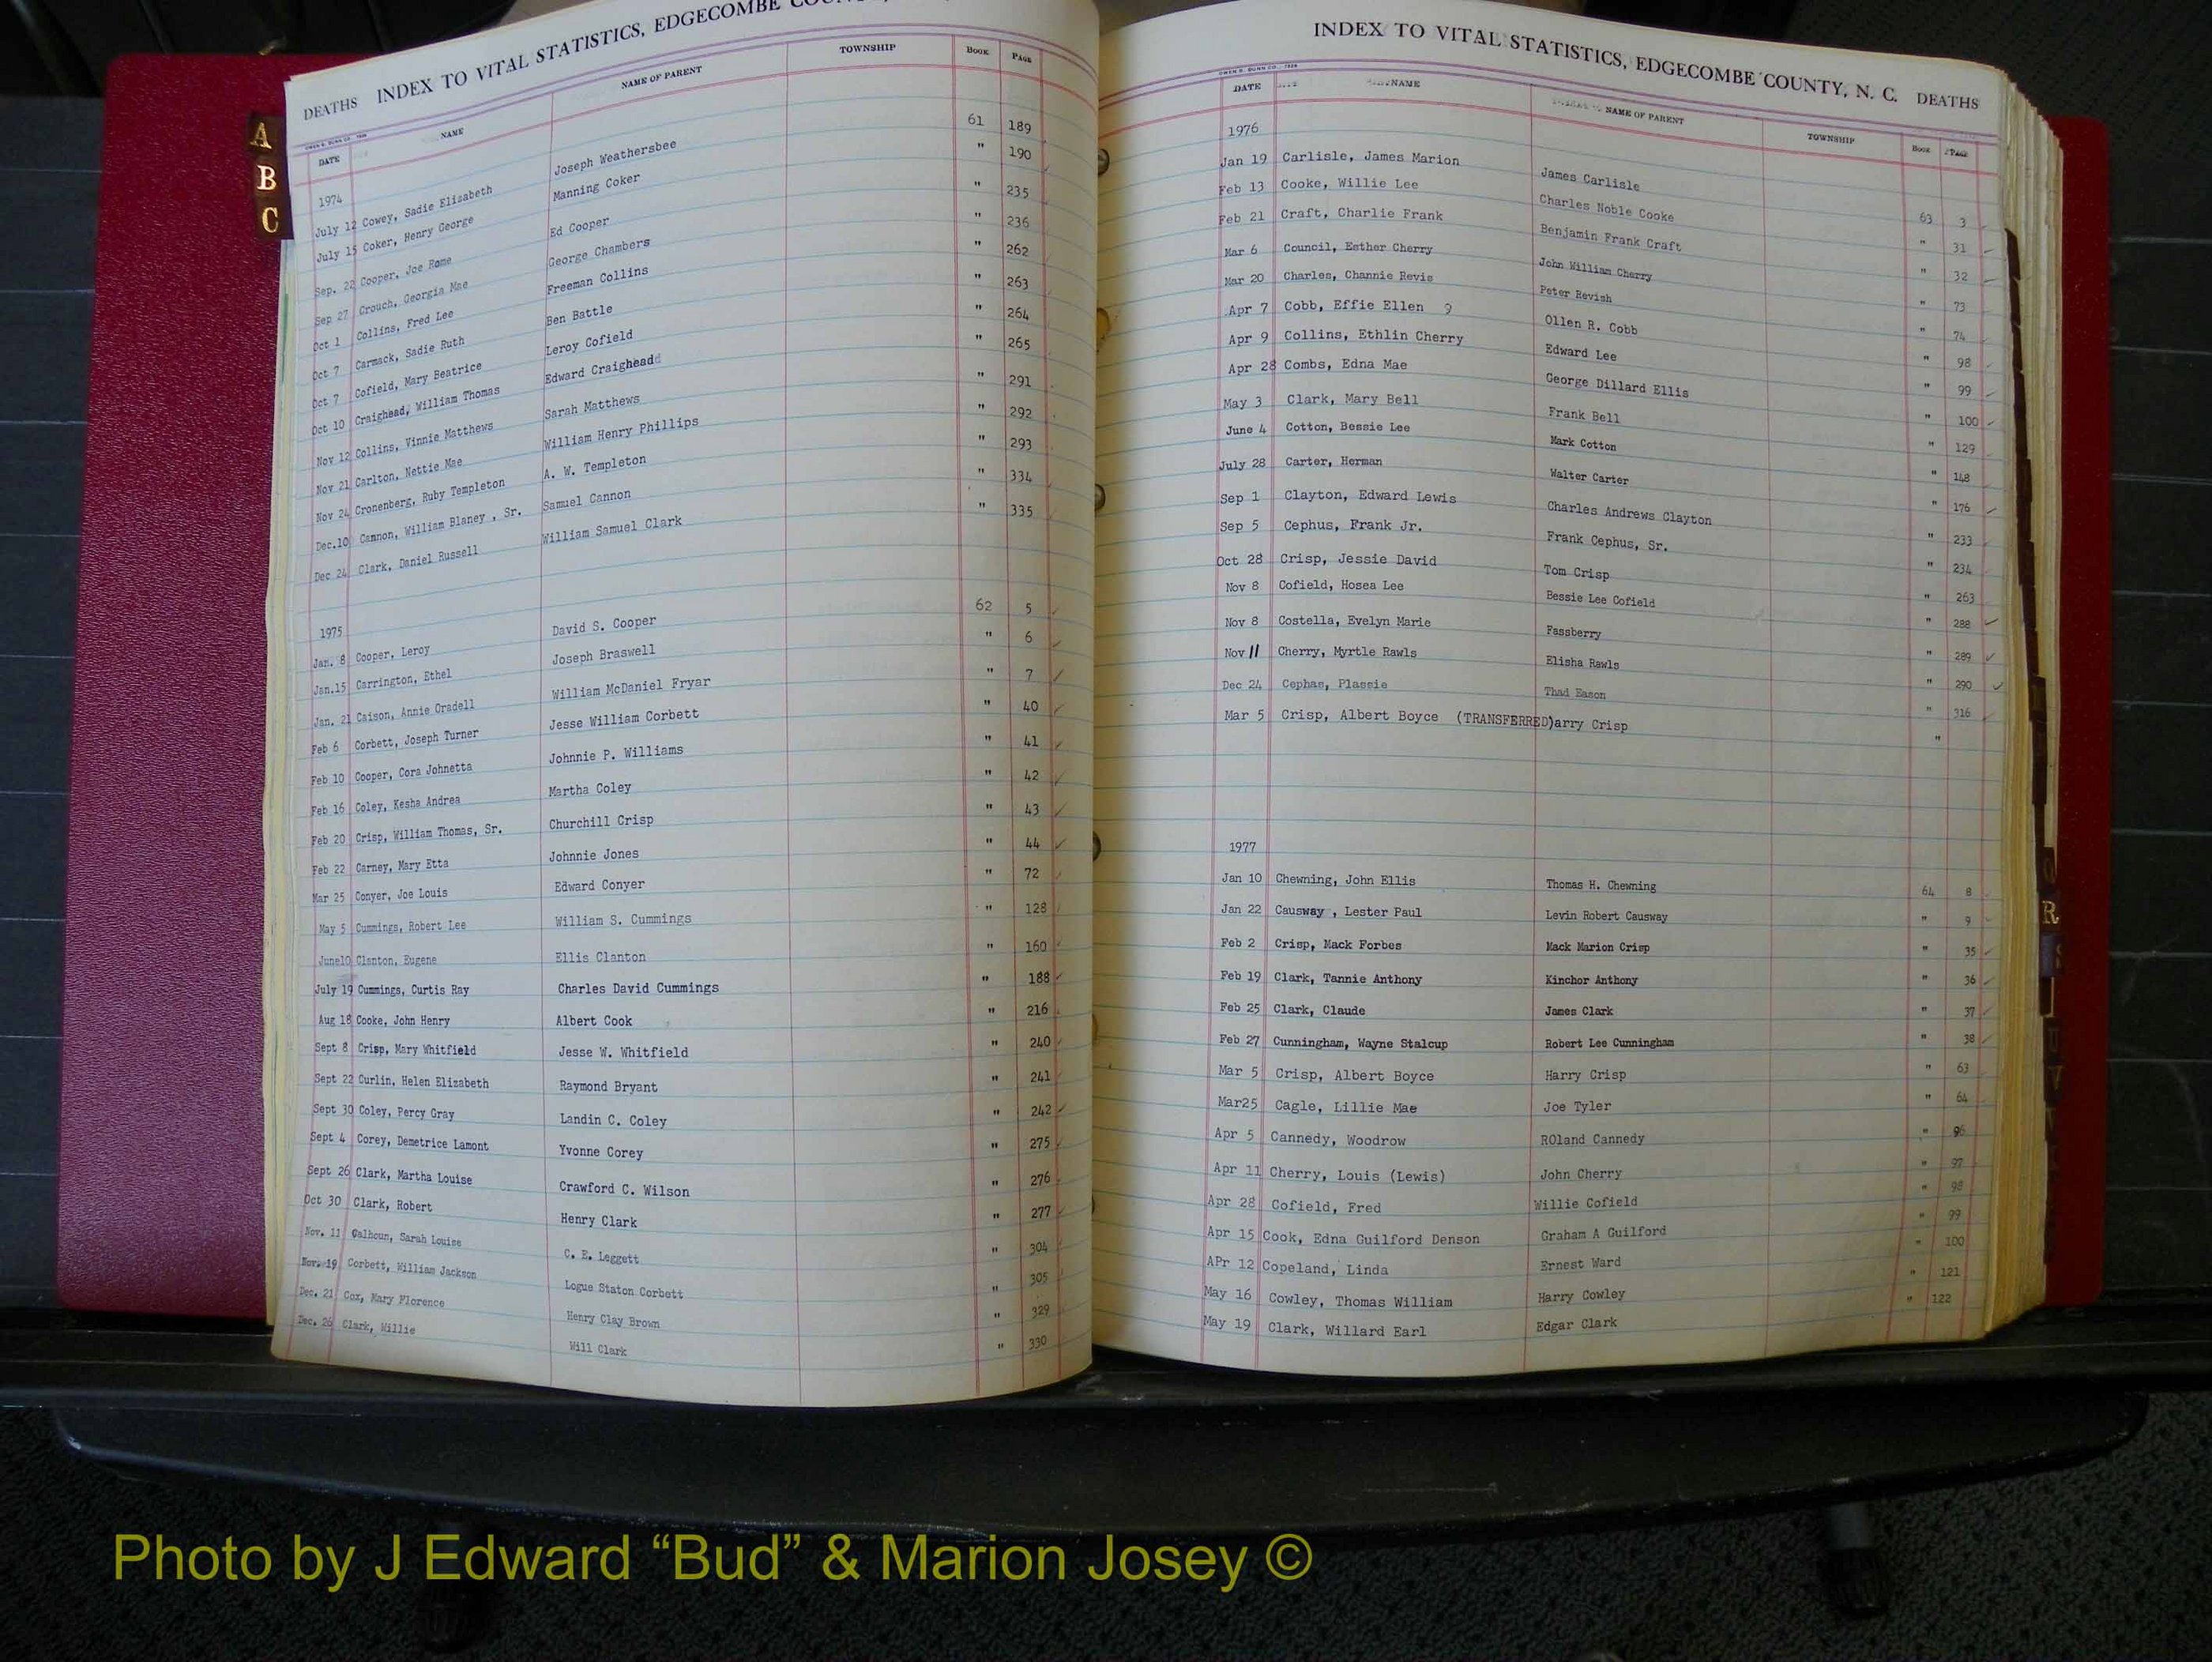 A
B
C
DEATHS INDEX TO VITAL STATISTICS, EDGECOMBE
DATE NAME NAME OF PARENT TOWNSHIP BOOK PAGE
1974
July 12 Cowey, Sadie Elizabeth Joseph Weathersbee 61 189
July 15 Coker, Henry George Manning Coker " 190
Sep. 22 Cooper, Joe Rome Ed Cooper " 235
Sep 27 Crouch, Georgia Mae George Chambers " 236
Oct 1 Collins, Fred Lee Freeman Collins " 262
Oct 7 Carmack, Sadie Ruth Ben Battle " 263
Oct 7 Cofield, Mary Beatrice Leroy Cofield " 264
Oct 10 Craighead, William Thomas Edward Craigheadd " 265
Nov 12 Collins, Vinnie Matthews Sarah Matthews " 291
Nov 21 Carlton, Nettie Mae William Henry Phillips " 292
Nov 24 Cronenberg, Ruby Templeton A. W. Templeton " 293
Dec.10 Cannon, William Blaney , Sr. Samuel Cannon " 334
Dec 24 Clark, Daniel Russell William Samuel Clark " 335
1975
Jan. 8 Cooper, Leroy David S. Cooper 62 5
Jan.15 Carrington, Ethel Joseph Braswell " 6
Jan. 21 Caison, Annie Oradell William McDaniel Fryar " 7
Feb 6 Corbett, Joseph Turner Jesse William Corbett " 40
Feb 10 Cooper, Cora Johnetta Johnnie P. Williams " 41
Feb 16 Coley, Kesha Andrea Martha Coley " 42
Feb 20 Crisp, William Thomas, Sr. Churchill Crisp " 43
Feb 22 Carney, Mary Etta Johnnie Jones " 44
Mar 25 Conyer, Joe Louis Edward Conyer " 72
May 5 Cummings, Robert Lee William S. Cummings " 128
June10 Clanton, Eugene Ellis Clanton " 160
July 19 Cummings, Curtis Ray Charles David Cummings " 188
Aug 18 Cooke, John Henry Albert Cook " 216
Sept 8 Crisp, Mary Whitfield Jesse W. Whitfield " 240
Sept 22 Curlin, Helen Elizabeth Raymond Bryant " 241
Sept 30 Coley, Percy Gray Landin C. Coley " 242
Sept 4 Corey, Demetrice Lamont Yvonne Corey " 275
Sept 26 Clark, Martha Louise Crawford C. Wilson " 276
Oct 30 Clark, Robert Henry Clark " 277
Nov. 11 Calhoun, Sarah Louise C. E. Leggett " 304
Nov. 19 Corbett, William Jackson Logue Staton Corbett " 305
Dec. 21 Cox, Mary Florence Henry Clay Brown " 329
Dec. 26 Clark, Willie Will Clark " 330
INDEX TO VITAL STATISTICS, EDGECOMBE COUNTY, N. C. DEATHS
DATE NAME NAME OF PARENT TOWNSHIP BOOK PAGE
1976
Jan 19 Carlisle, James Marion James Carlisle 63 3
Feb 13 Cooke, Willie Lee Charles Noble Cooke " 31
Feb 21 Craft, Charlie Frank Benjamin Frank Craft " 32
Mar 6 Council, Esther Cherry John William Cherry " 73
Mar 20 Charles, Channie Revis Peter Revish " 74
Apr 7 Cobb, Effie Ellen 9 Ollen R. Cobb " 98
Apr 9 Collins, Ethlin Cherry Edward Lee " 99
Apr 28 Combs, Edna Mae George Dillard Ellis " 100
May 3 Clark, Mary Bell Frank Bell " 129
June 4 Cotton, Bessie Lee Mark Cotton " 148
July 28 Carter, Herman Walter Carter " 176
Sep 1 Clayton, Edward Lewis Charles Andrews Clayton " 233
Sep 5 Cephus, Frank Jr. Frank Cephus, Sr. " 234
Oct 28 Crisp, Jessie David Tom Crisp " 263
Nov 8 Cofield, Hosea Lee Bessie Lee Cofield " 288
Nov 8 Costella, Evelyn Marie Fassberry " 289
Nov 11 Cherry, Myrtle Rawls Elisha Rawls " 290
Dec 24 Cephas, Plassie Thad Eason " 316
Mar 5 Crisp, Albert Boyce (TRANSFERRED)arry Crisp "
1977
Jan 10 Chewning, John Ellis Thomas H. Chewning 64 8
Jan 22 Causway , Lester Paul Levin Robert Causway " 9
Feb 2 Crisp, Mack Forbes Mack Marion Crisp " 35
Feb 19 Clark, Tannie Anthony Kinchor Anthony " 36
Feb 25 Clark, Claude James Clark " 37
Feb 27 Cunningham, Wayne Stalcup Robert Lee Cunningham " 38
Mar 5 Crisp, Albert Boyce Harry Crisp " 63
Mar25 Cagle, Lillie Mae Joe Tyler " 64
Apr 5 Cannedy, Woodrow ROland Cannedy " 96
Apr 11 Cherry, Louis (Lewis) John Cherry " 97
Apr 28 Cofield, Fred Willie Cofield " 98
Apr 15 Cook, Edna Guilford Denson Graham A Guilford " 99
APr 12 Copeland, Linda Ernest Ward " 100
May 16 Cowley, Thomas William Harry Cowley " 121
May 19 Clark, Willard Earl Edgar Clark " 122
R
Photo by J Edward “Bud” & Marion Josey ©